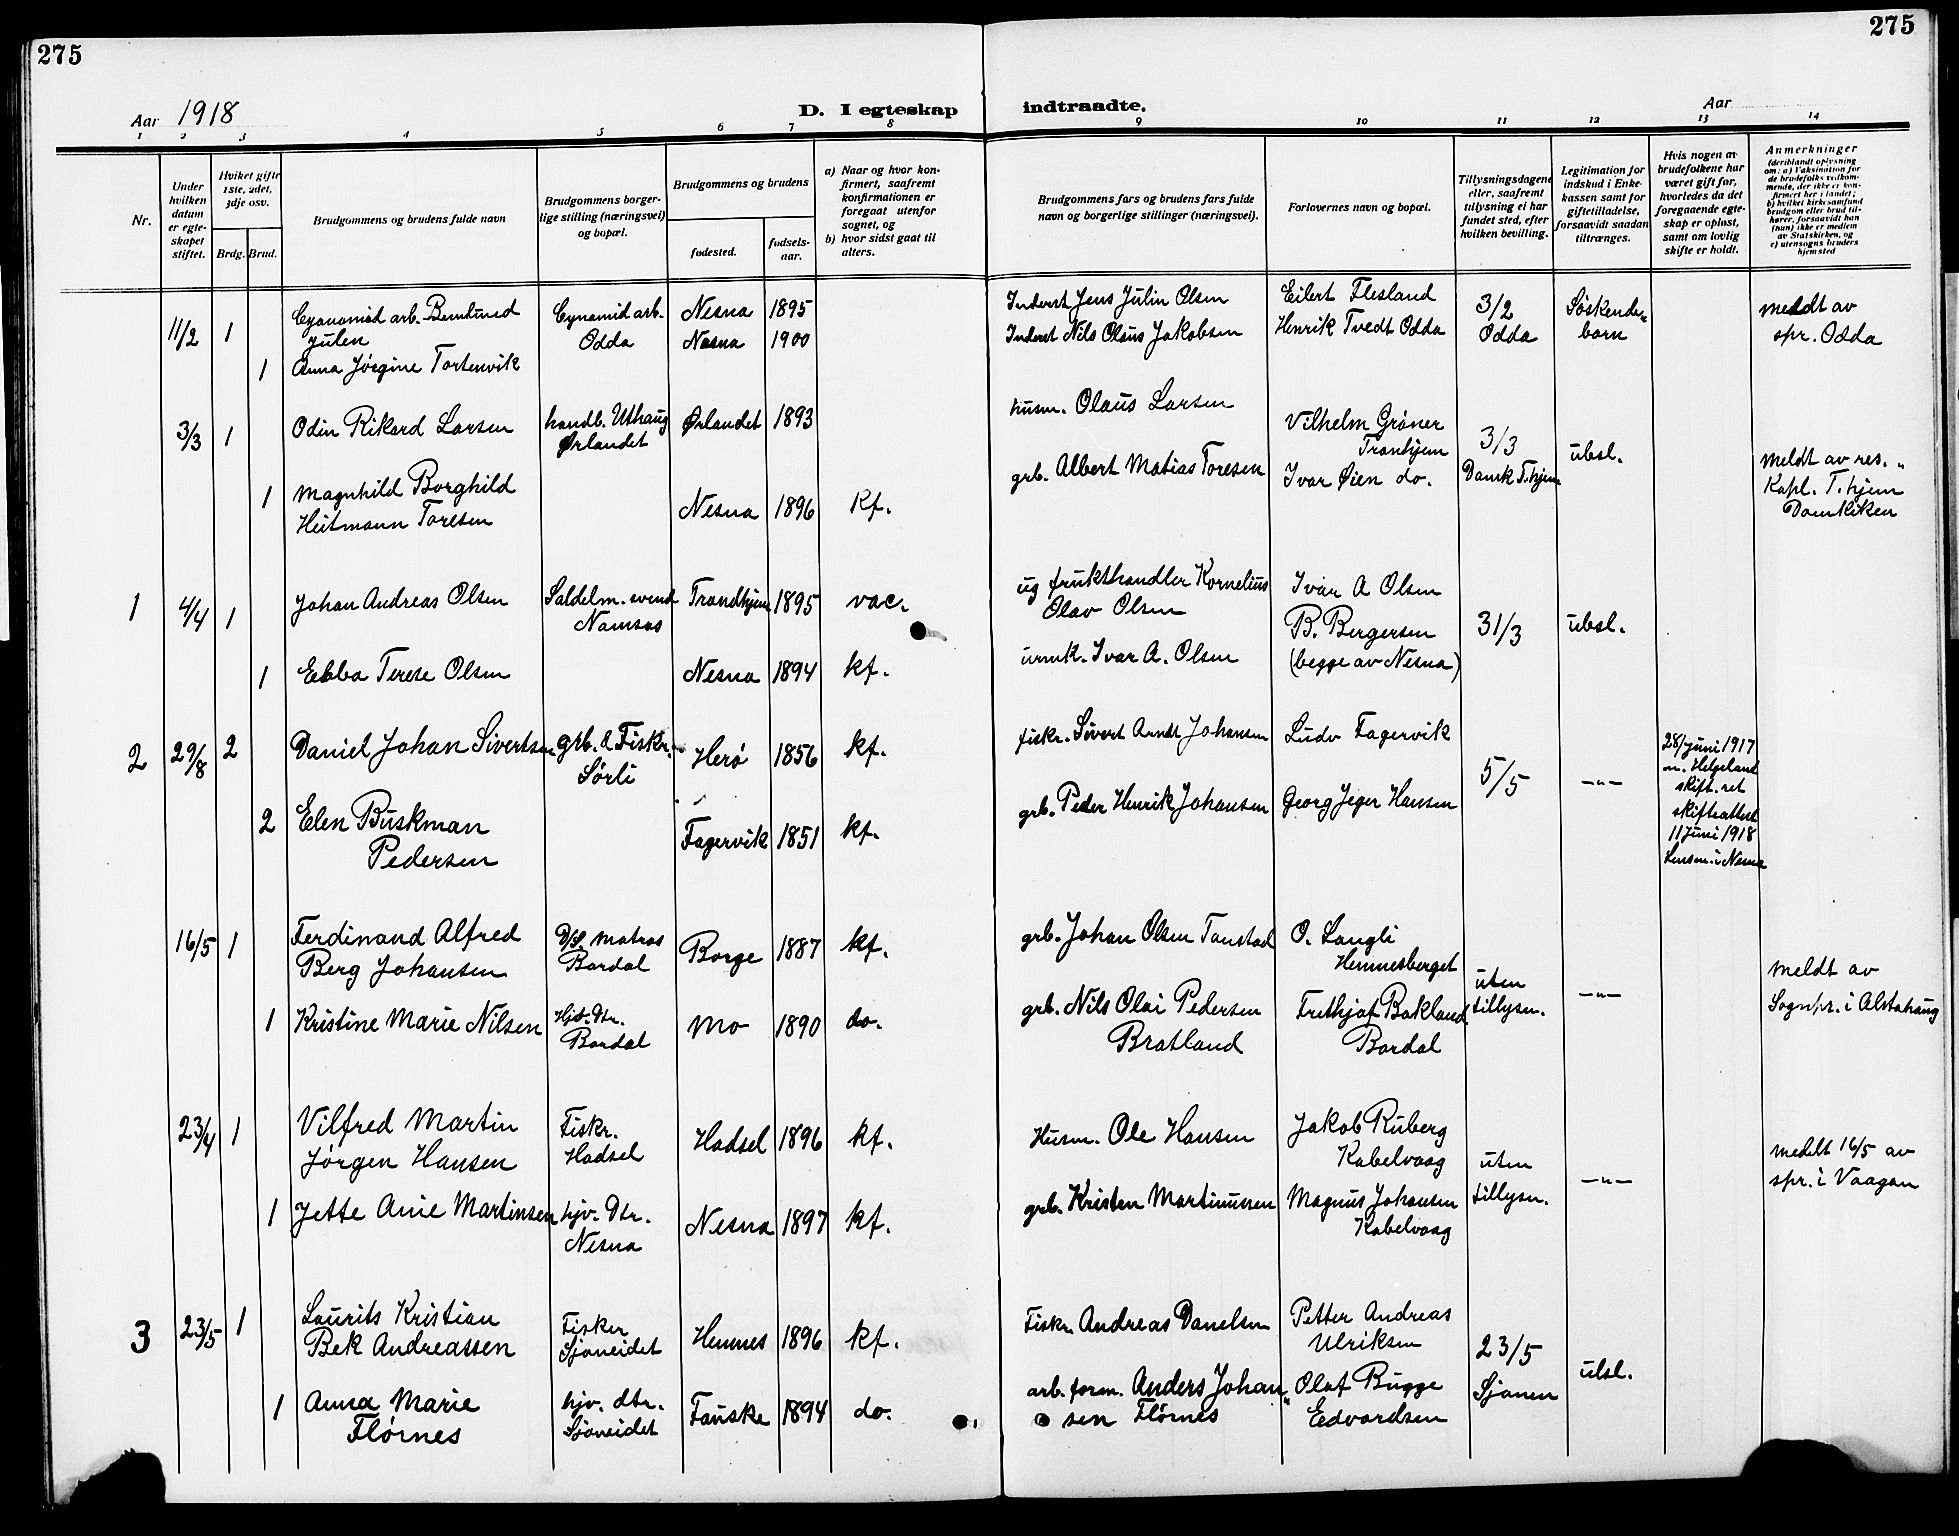 275
275
Aar 1918
D. I egteskap indtraadte.
Aar
1 2 3 4 5 6 7 8 9 10 11 12 13 14
Nr.
Under hvilken datum er egteskapet stiftet.
Hviket gifte 1ste, 2det, 3dje osv.
Brdg. Brud.
Brudgommens og brudens fulde navn
Brudgommens borgerlige stilling (næringsvei) og bopæl.
Brudgommens og brudens
fødested.
fødselsaar.
a) Naar og hvor konfirmert, saafremt konfirmationen er foregaat utenfor sognet, og
b) hvor sidst gaat til alters.
Brudgommens fars og brudens fars fulde navn og borgerlige stillinger (næringsvei).
Forlovernes navn og bopæl.
Tillysningsdagene eller, saafremt tillysning ei har fundet sted, efter hvilken bevilling.
Legitimation for indskud i Enkekassen samt for giftetilladelse, forsaavidt saadan tiltrænges.
Hvis nogen av brudefolkene har været gift før, hvorledes da det foregaaende egteskap er opløst, samt om lovlig skifte er holdt.
Anmerkninger
(deriblandt oplysning om: a) Vaksination for de brudefolks vedkommende, der ikke er konfirmert her i landet; b) hvilket kirkesamfund brudgom eller brud tilhører, forsaavidt han (hun) ikke er medlem av Statskirken, og c) utensogns bruders hjemsted
11/2 1 Cyanamid arb. Berntund
Julen
Cynamid arb.
Odda
Nesna 1895
Nesna 1900
1 Anna Jørgine Tortenvik
Inderst Jens Julin Olsen
Inderst Nils Olaus Jakobsen
Eilert Flesland
Henrik Tvedt Odda
3/2
Odda
Søskende
barn
meldt av
spr. Odda
3/3 1 Odin Rikard Larsen
handb. Uthaug
Ørlandet
Ørlandet 1893
husm. Olaus Larsen
Vilhelm Grøner
Tronhjem
1 Magnhild Borghild
Heitmann Toresen
Nesna 1896 kf.
grb. Albert Matias Toresen
Ivar Øien do.
3/3
Domk T.hjem
ubsl.
meldt av res.
Kapl. T.hjem
Domkiken
1 4/4 1 Johan Andreas Olsen
Saldelm. svend
Namsos
Trondhjem 1895 vac.
ug frukthandler Kornelius
Olav Olsen
Ivar A Olsen
B. Bergersen
(begge av Nesna)
31/3
ubsl.
1 Ebba Terese Olsen
Nesna 1894 kf.
urmk. Ivar A. Olsen
2 29/8 2 Daniel Johan Sivertsen
grb. & Fiskr.
Sørli
Herø 1856 kf.
fiskr. Sivert Arndt Johansen
Ludv Fagervik
5/5
-"-
28/juni 1917
m. Helgeland
skift.ret
skifteattest
11 Juni 1918
Lensm. i Nesna
2 Elen Buskman
Pedersen
Fagervik 1851 kf.
grb. Peder Henrik Johansen
Georg Jeger Hansen
16/5 1 Ferdinand Alfred
Berg Johansen
D/S. Matros
Bardal
Borge 1887 kf.
grb. Johan Olsen Tanstad
O. Langli
Hemnesberget
uten
tillysn.
-"-
meldt av
Sognpr. i Alstahaug
1 Kristine Marie Nilsen
Hjv. Dtr.
Bardal
Mo 1890 do.
grb. Nils Olai Pedersen
Bratland
Frithjof Bakland
Bardal
23/4 1 Vilfred Martin
Jørgen Hansen
Fiskr.
Hadsel
Hadsel 1896 kf.
Husm. Ole Hansen
Jakob Ruberg
Kabelvaag
uten
tillysn.
-"-
medelt 16/5 av
spr. i Vaagan
1 Jette Anie Martinsen
hjv. Dtr.
Nesna
Nesna 1897 kf.
grb. Kristen Martinussen
Magnus Johansen
Kabelvaag
3 23/5 1 Laurits Kristian
Bek Andreassen
Fisker
Sjoneidet
Hemnes 1896 kf.
Fiskr. Andreas Danelsen
Petter Andreas
Ulriksen
23/5
Sjonen
ubsl.
1 Anna Marie
Flørnes
hjv. dtr.
Sjoneidet
Fauske 1894 do.
arb. form. Anders Johan
sen Flørnes
Olaf Bugge
Edvardsen